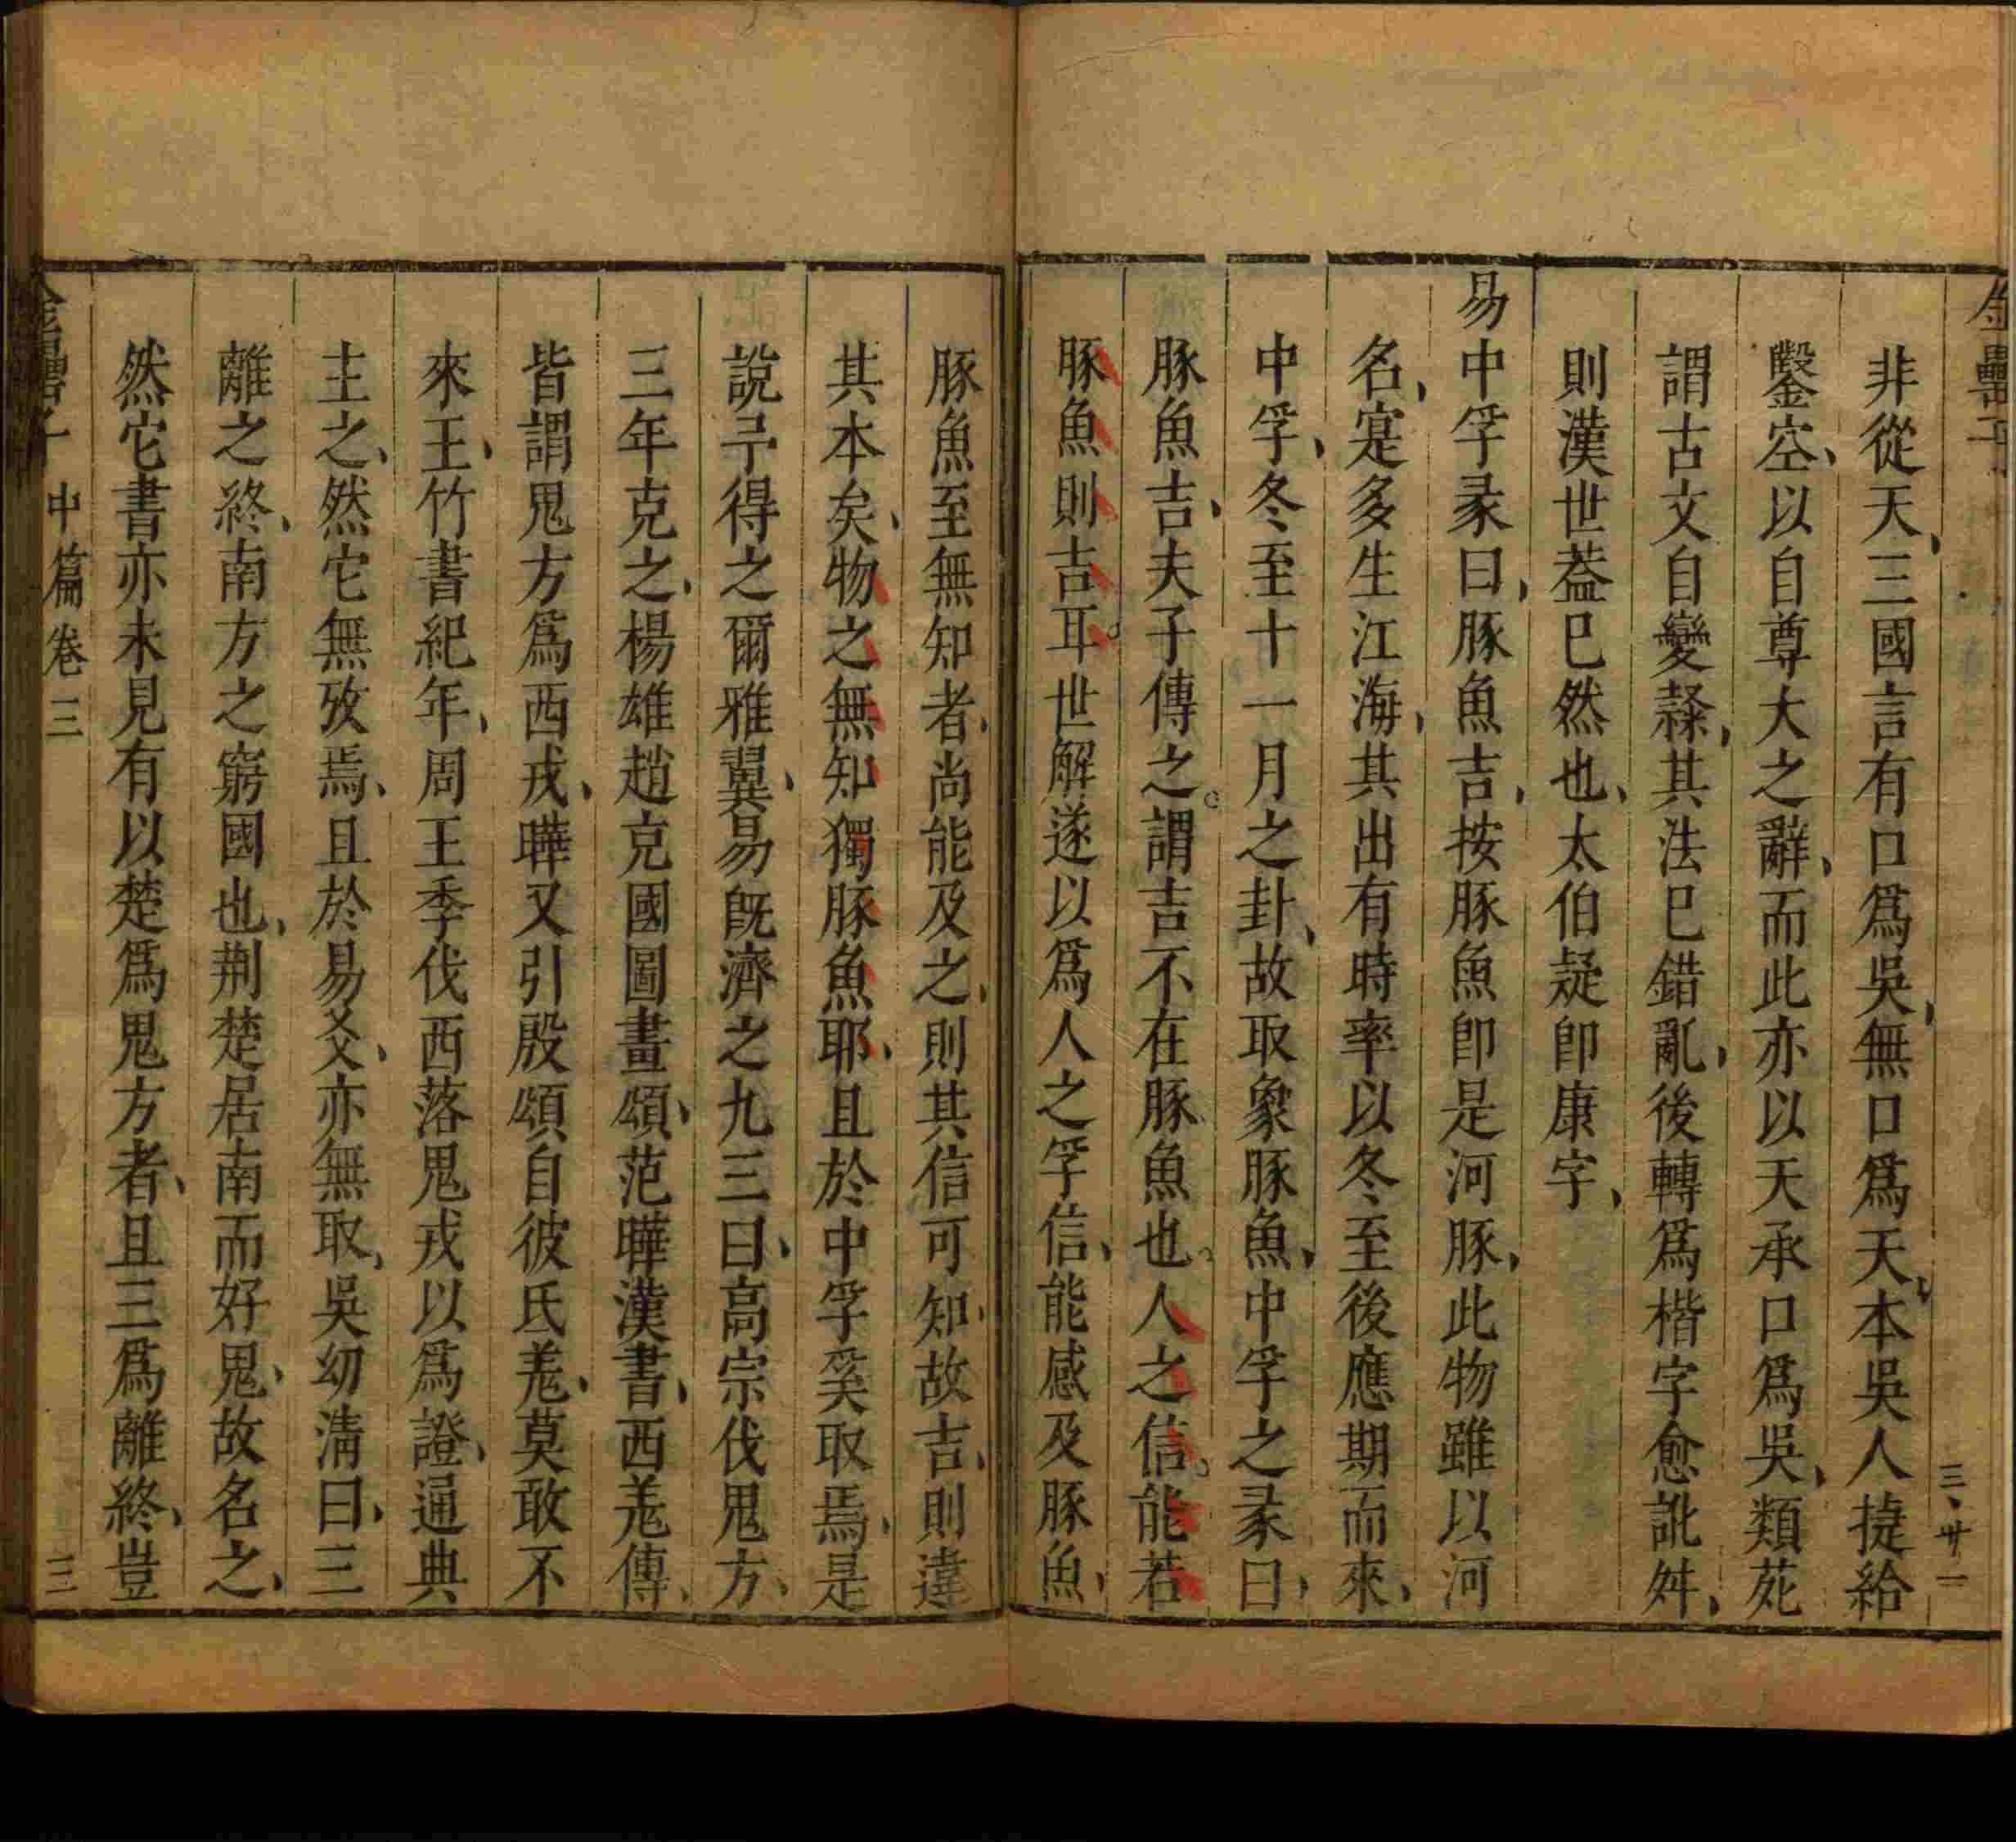 金罍子
三、廿一
非從天、三國言有口爲吳、無口爲天、本吳人捷給
鑿空、以自尊大之辭、而此亦以天承口爲吳、類苑
謂古文自變隸、其法已錯亂、後轉爲楷字愈訛舛、
則漢世葢已然也、太伯疑卽康字、
易中孚彖曰、豚魚吉、按豚魚卽是河豚、此物雖以河
名、寔多生江海、其出有時率以冬至後應期而來、
中孚、冬至十一月之卦、故取象豚魚、中孚之彖曰、
豚魚吉、夫子傳之。謂吉不在豚魚也、人之信。能若
豚魚則吉耳。世解遂以爲人之孚信、能感及豚魚、
豚魚至無知者、尚能及之、則其信可知、故吉、則違
其本矣、物之無知獨豚魚耶、且於中孚奚取焉、是
說予得之爾雅翼、易旣濟之九三曰、高宗伐鬼方、
三年克之、楊雄趙充國圖畫頌、范曄漢書、西羌傳、
皆謂鬼方爲西戎、曄又引殷頌自彼氐羌、莫敢不
來王、竹書紀年、周王季伐西落鬼戎以爲證、通典
主之、然它無攷焉、且於易爻、亦無取、吳幼清曰、三
離之終、南方之窮國也、荆楚居南而好鬼、故名之、
然它書亦未見有以楚爲鬼方者、且三爲離終、豈
中篇卷三
三